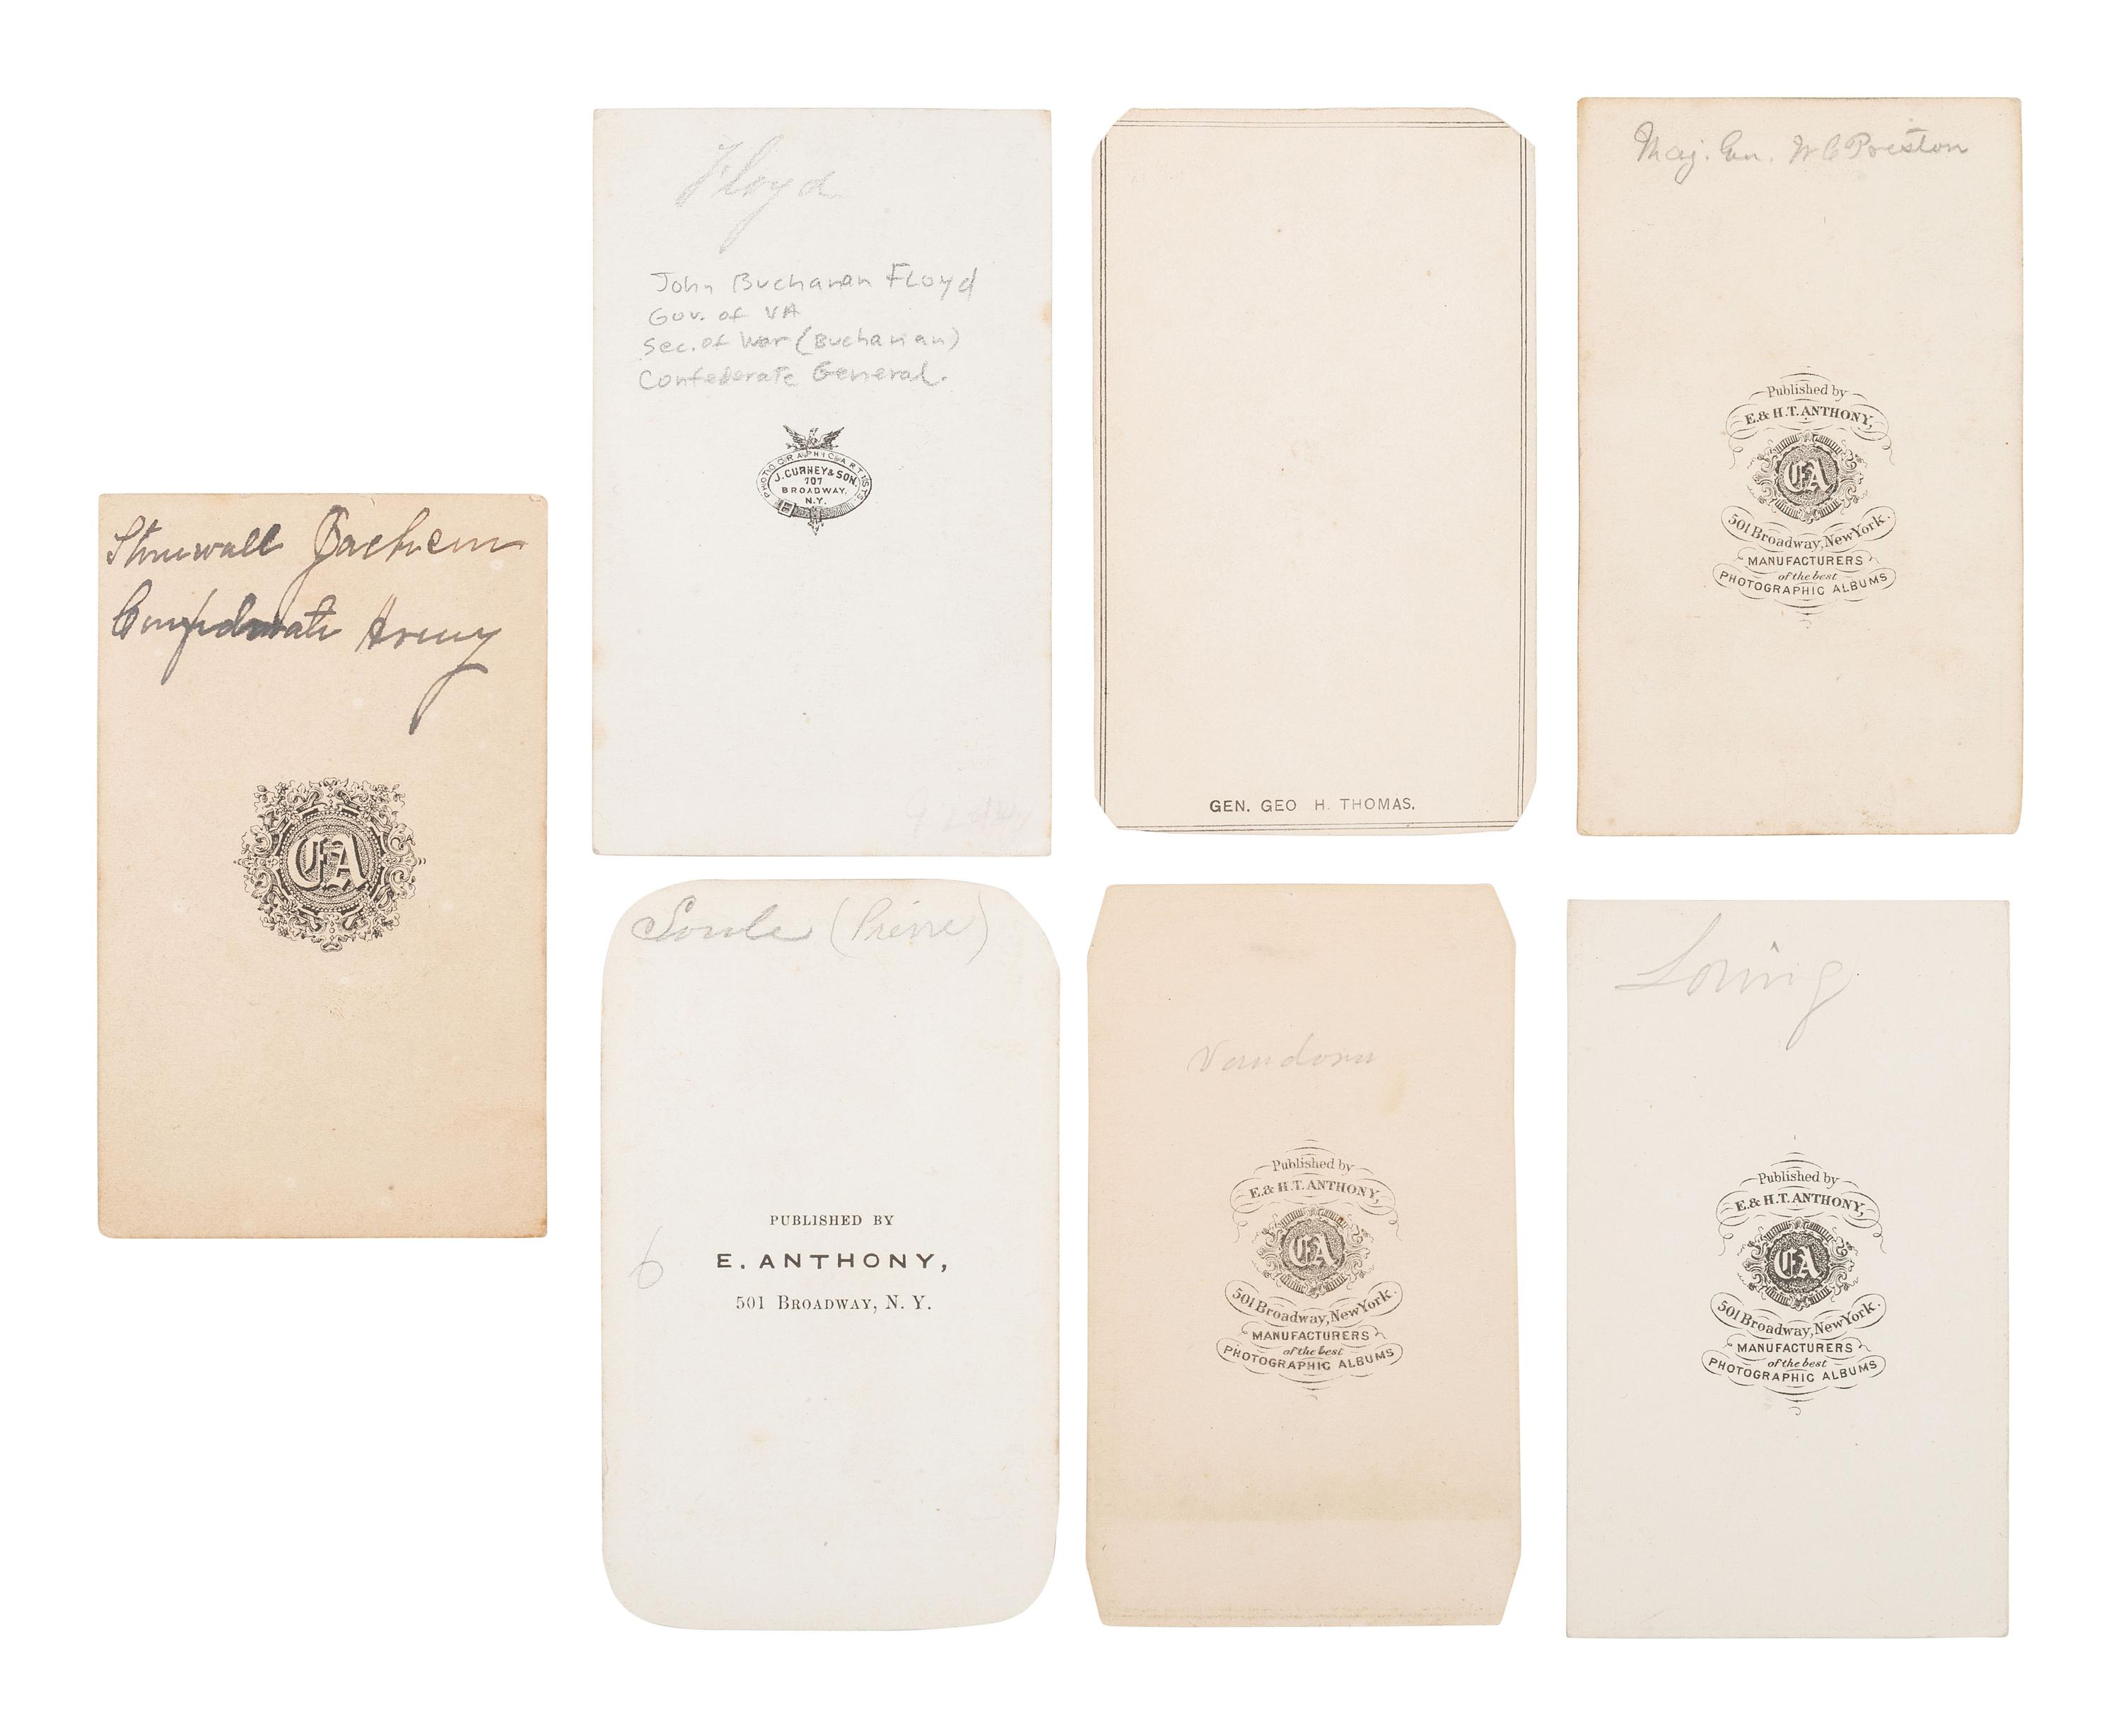 Stonewall Jackson
Confederate Army
CA
Floyd
John Buchanan Floyd
Gov. of VA
Sec. of War (Buchanan)
Confederate General.
PHOTOGRAPHIC ARTISTS
J. GURNEY & SON,
707
BROADWAY,
N.Y.
GEN. GEO H. THOMAS.
Maj. Gen. W C Preston
Published by
E. & H. T. ANTHONY,
EA
501 Broadway, New York.
MANUFACTURERS
of the best
PHOTOGRAPHIC ALBUMS
Soule (Pierre)
6
PUBLISHED BY
E. ANTHONY,
501 BROADWAY, N. Y.
Vandorn
Published by
E. & H. T. ANTHONY,
EA
501 Broadway, New York.
MANUFACTURERS
of the best
PHOTOGRAPHIC ALBUMS
Loring
Published by
E. & H. T. ANTHONY,
EA
501 Broadway, New York.
MANUFACTURERS
of the best
PHOTOGRAPHIC ALBUMS